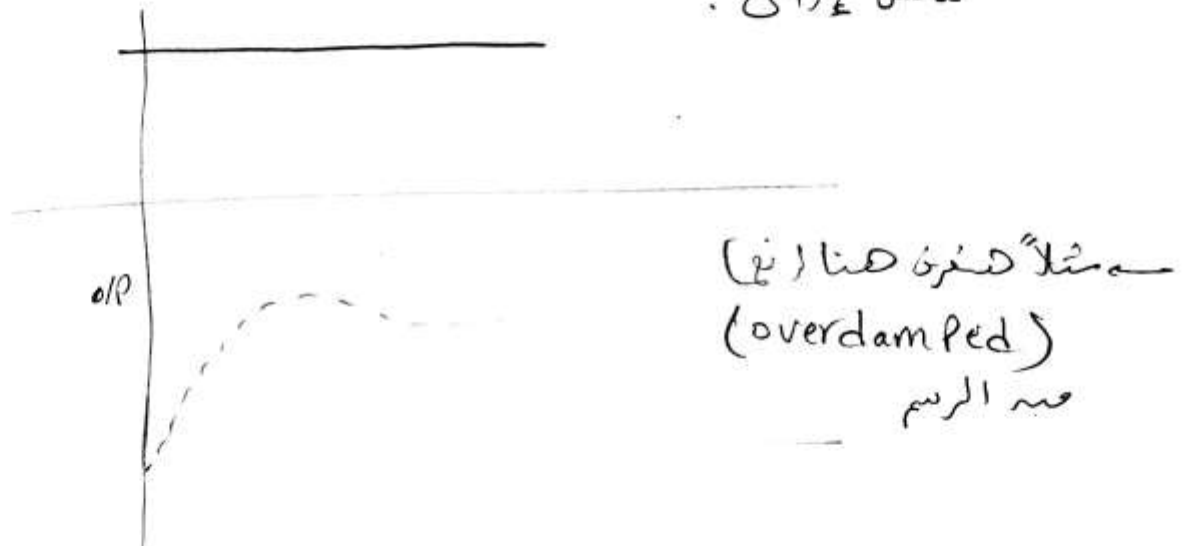 o/P
مثلاً هنعرف هنا (انه)
(overdamPed)
من الرسم